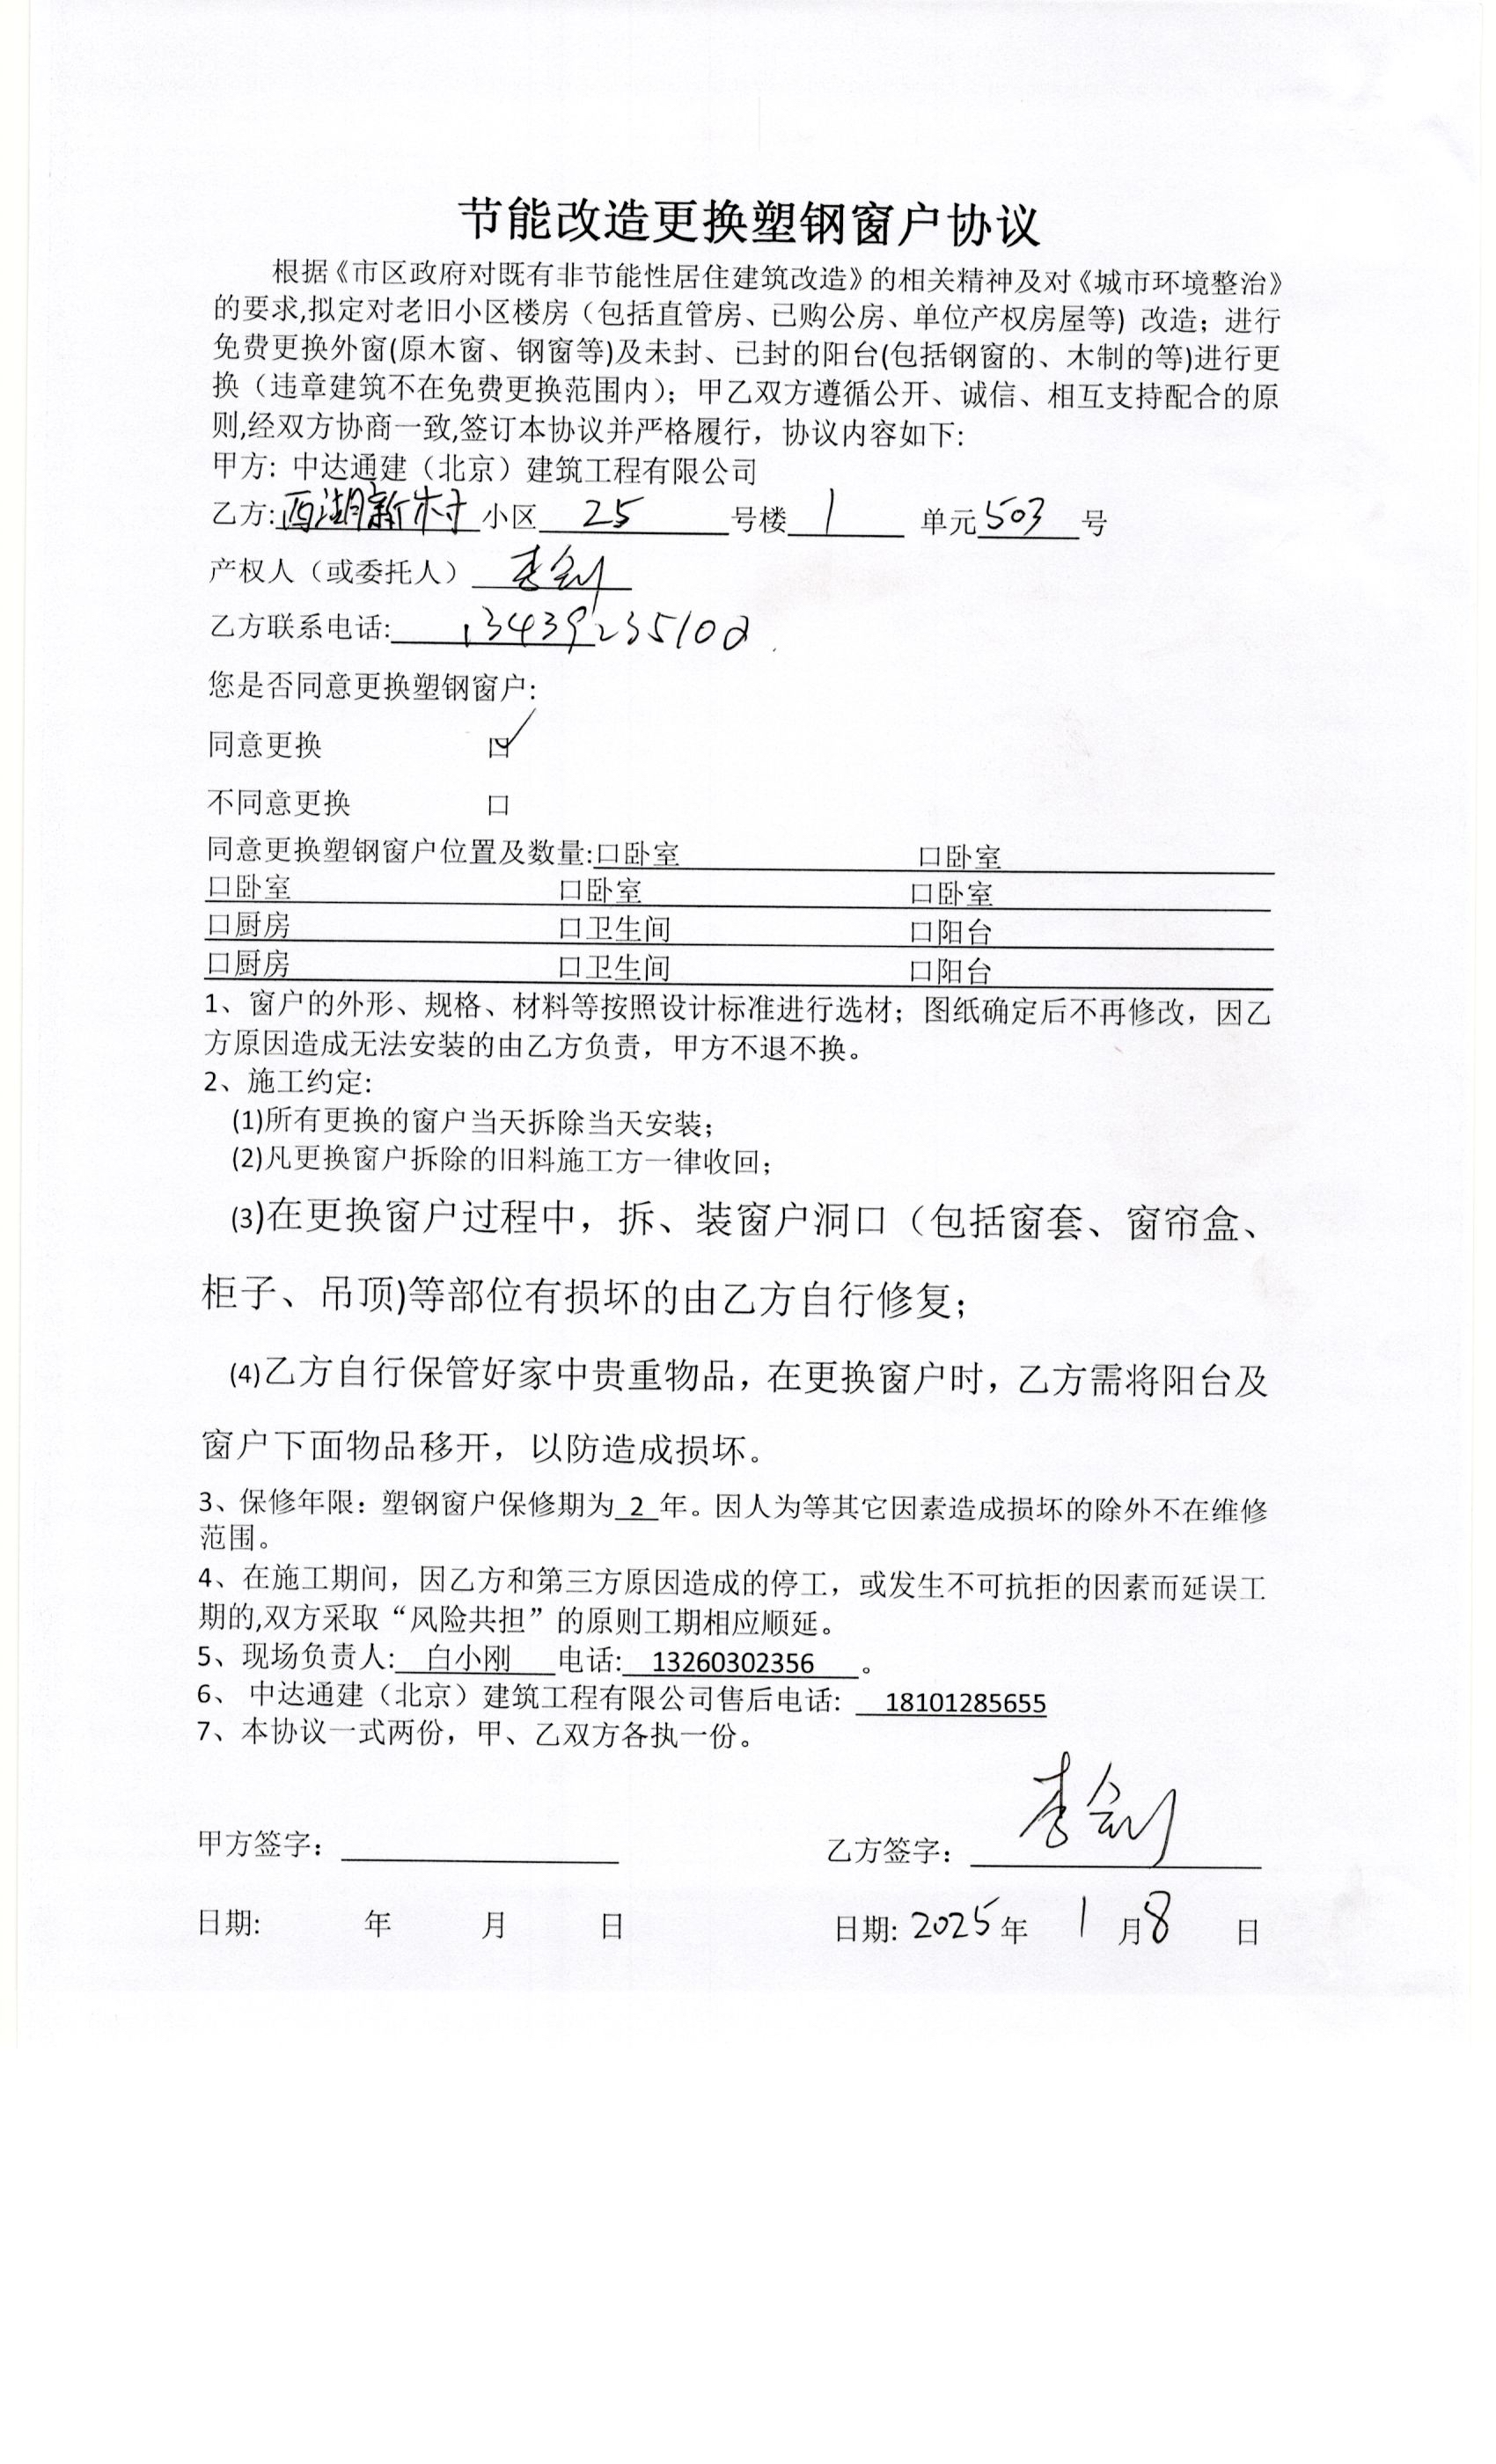 节能改造更换塑钢窗户协议
根据《市区政府对既有非节能性居住建筑改造》的相关精神及对《城市环境整治》
的要求,拟定对老旧小区楼房（包括直管房、已购公房、单位产权房屋等）改造；进行
免费更换外窗(原木窗、钢窗等)及未封、已封的阳台(包括钢窗的、木制的等)进行更
换（违章建筑不在免费更换范围内）；甲乙双方遵循公开、诚信、相互支持配合的原
则,经双方协商一致,签订本协议并严格履行，协议内容如下:
甲方: 中达通建（北京）建筑工程有限公司
乙方: 西湖新村 小区 25 号楼 1 单元 503 号
产权人（或委托人） 李剑
乙方联系电话: 13439235102
您是否同意更换塑钢窗户:
同意更换 口✓
不同意更换 口
同意更换塑钢窗户位置及数量:口卧室 口卧室
口卧室 口卧室 口卧室
口厨房 口卫生间 口阳台
口厨房 口卫生间 口阳台
1、窗户的外形、规格、材料等按照设计标准进行选材；图纸确定后不再修改，因乙
方原因造成无法安装的由乙方负责，甲方不退不换。
2、施工约定:
(1)所有更换的窗户当天拆除当天安装；
(2)凡更换窗户拆除的旧料施工方一律收回；
(3)在更换窗户过程中，拆、装窗户洞口（包括窗套、窗帘盒、
柜子、吊顶)等部位有损坏的由乙方自行修复；
(4)乙方自行保管好家中贵重物品，在更换窗户时，乙方需将阳台及
窗户下面物品移开，以防造成损坏。
3、保修年限：塑钢窗户保修期为 2 年。因人为等其它因素造成损坏的除外不在维修
范围。
4、在施工期间，因乙方和第三方原因造成的停工，或发生不可抗拒的因素而延误工
期的,双方采取“风险共担”的原则工期相应顺延。
5、现场负责人: 白小刚 电话: 13260302356 。
6、 中达通建（北京）建筑工程有限公司售后电话: 18101285655
7、本协议一式两份，甲、乙双方各执一份。
甲方签字： 乙方签字： 李剑
日期: 年 月 日 日期: 2025 年 1 月 8 日